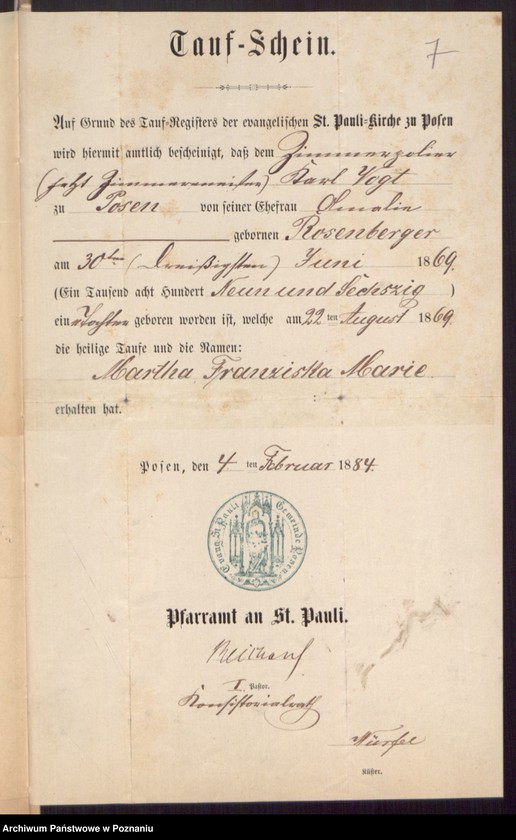 7
Tauf-Schein.
Auf Grund des Tauf-Registers der evangelischen St. Pauli-Kirche zu Posen
wird hiermit amtlich bescheinigt, daß dem Zimmerpolier
(jetzt Zimmermeister) Karl Vogt
zu Posen von seiner Ehefrau Amalie
gebornen Rosenberger
am 30ten (Dreißigsten) Juni 1869.
(Ein Tausend acht Hundert Neun und Sechszig )
eine Tochter geboren worden ist, welche am 22 ten August 1869.
die heilige Taufe und die Namen:
Martha Franziska Marie
erhalten hat.
Posen, den 4 ten Februar 1884.
Evang. St. Pauli Gemeinde Posen
Pfarramt an St. Pauli.
Reichard
I. Pastor.
Konsistorialrath
Würfel
Küster.
Archiwum Państwowe w Poznaniu